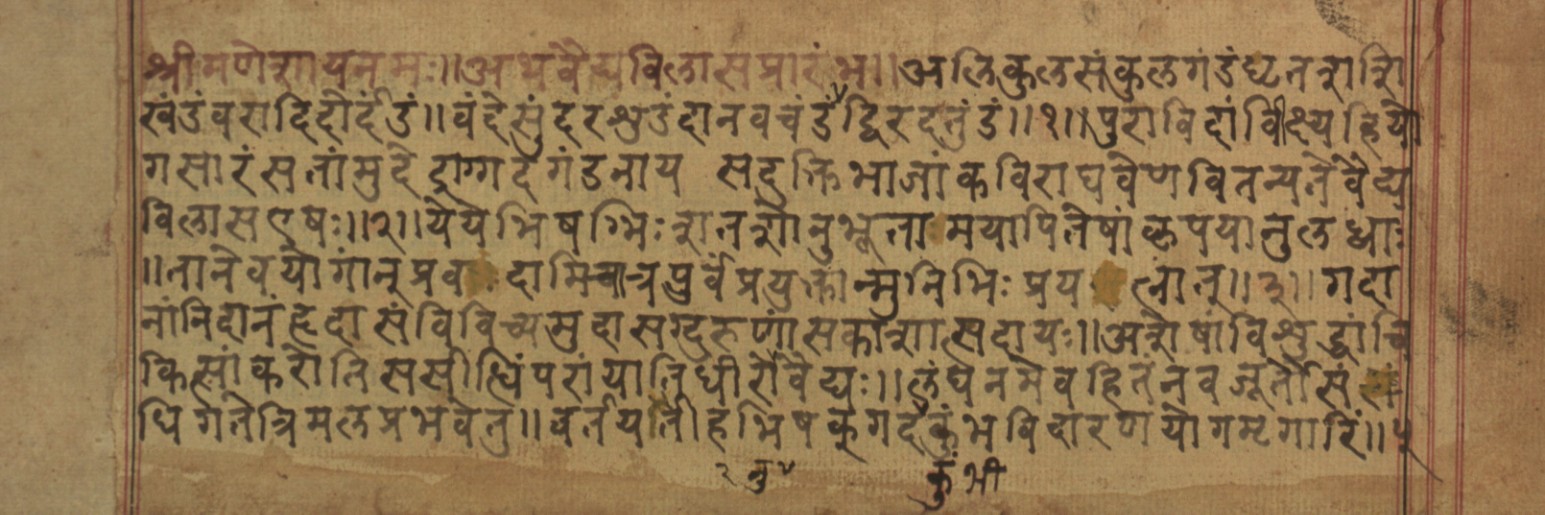 श्रीगणेशायनमः।।अथवैद्यविलासप्रारंभ।।अलिकुलसंकुलगंडंघृतनाना
खंडंवरादिदोर्दंडं॥वंदेसुंदरशुडंदानवचंडंद्विरदतुंडं॥१॥पुराविदांवीक्ष्यहियो
गसारंसतांमुदेद्राग्गदगंडनाय सदुक्तिभाजांकविराघवेणवितन्यतेवैद्य
विलासएषः॥२॥येयेभिषग्भिःशतशोनुभूतामयापितेषांकृपयानुलब्धाः
॥तानेवयोगान्प्रव दामिचात्रपुर्वेप्रयुक्तान्मुनिभिःप्रय त्नात्॥३॥गदा
नांनिदानंहृदासंविविच्यमुदासद्गुरुणांसकाशात्सदायः॥अशेषांविशुद्धांचि
कित्सांकरोतिससीत्धिंपरांयातिधीरोवैद्यः॥लंघनमेवहितंनवजूर्तौसं
धिगतेत्रिमलप्रभवेतु॥वर्तयतीहभिषक्गदकुंभविदारणयोगमृगारिं॥५
२ नु४ कुंभी